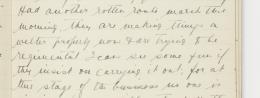 Had another rotten route march this
morning, they are making things a
welter properly now & are trying to be
regimental I can see some fun if
they insist on carrying it out, for at
this stage of the business no one is